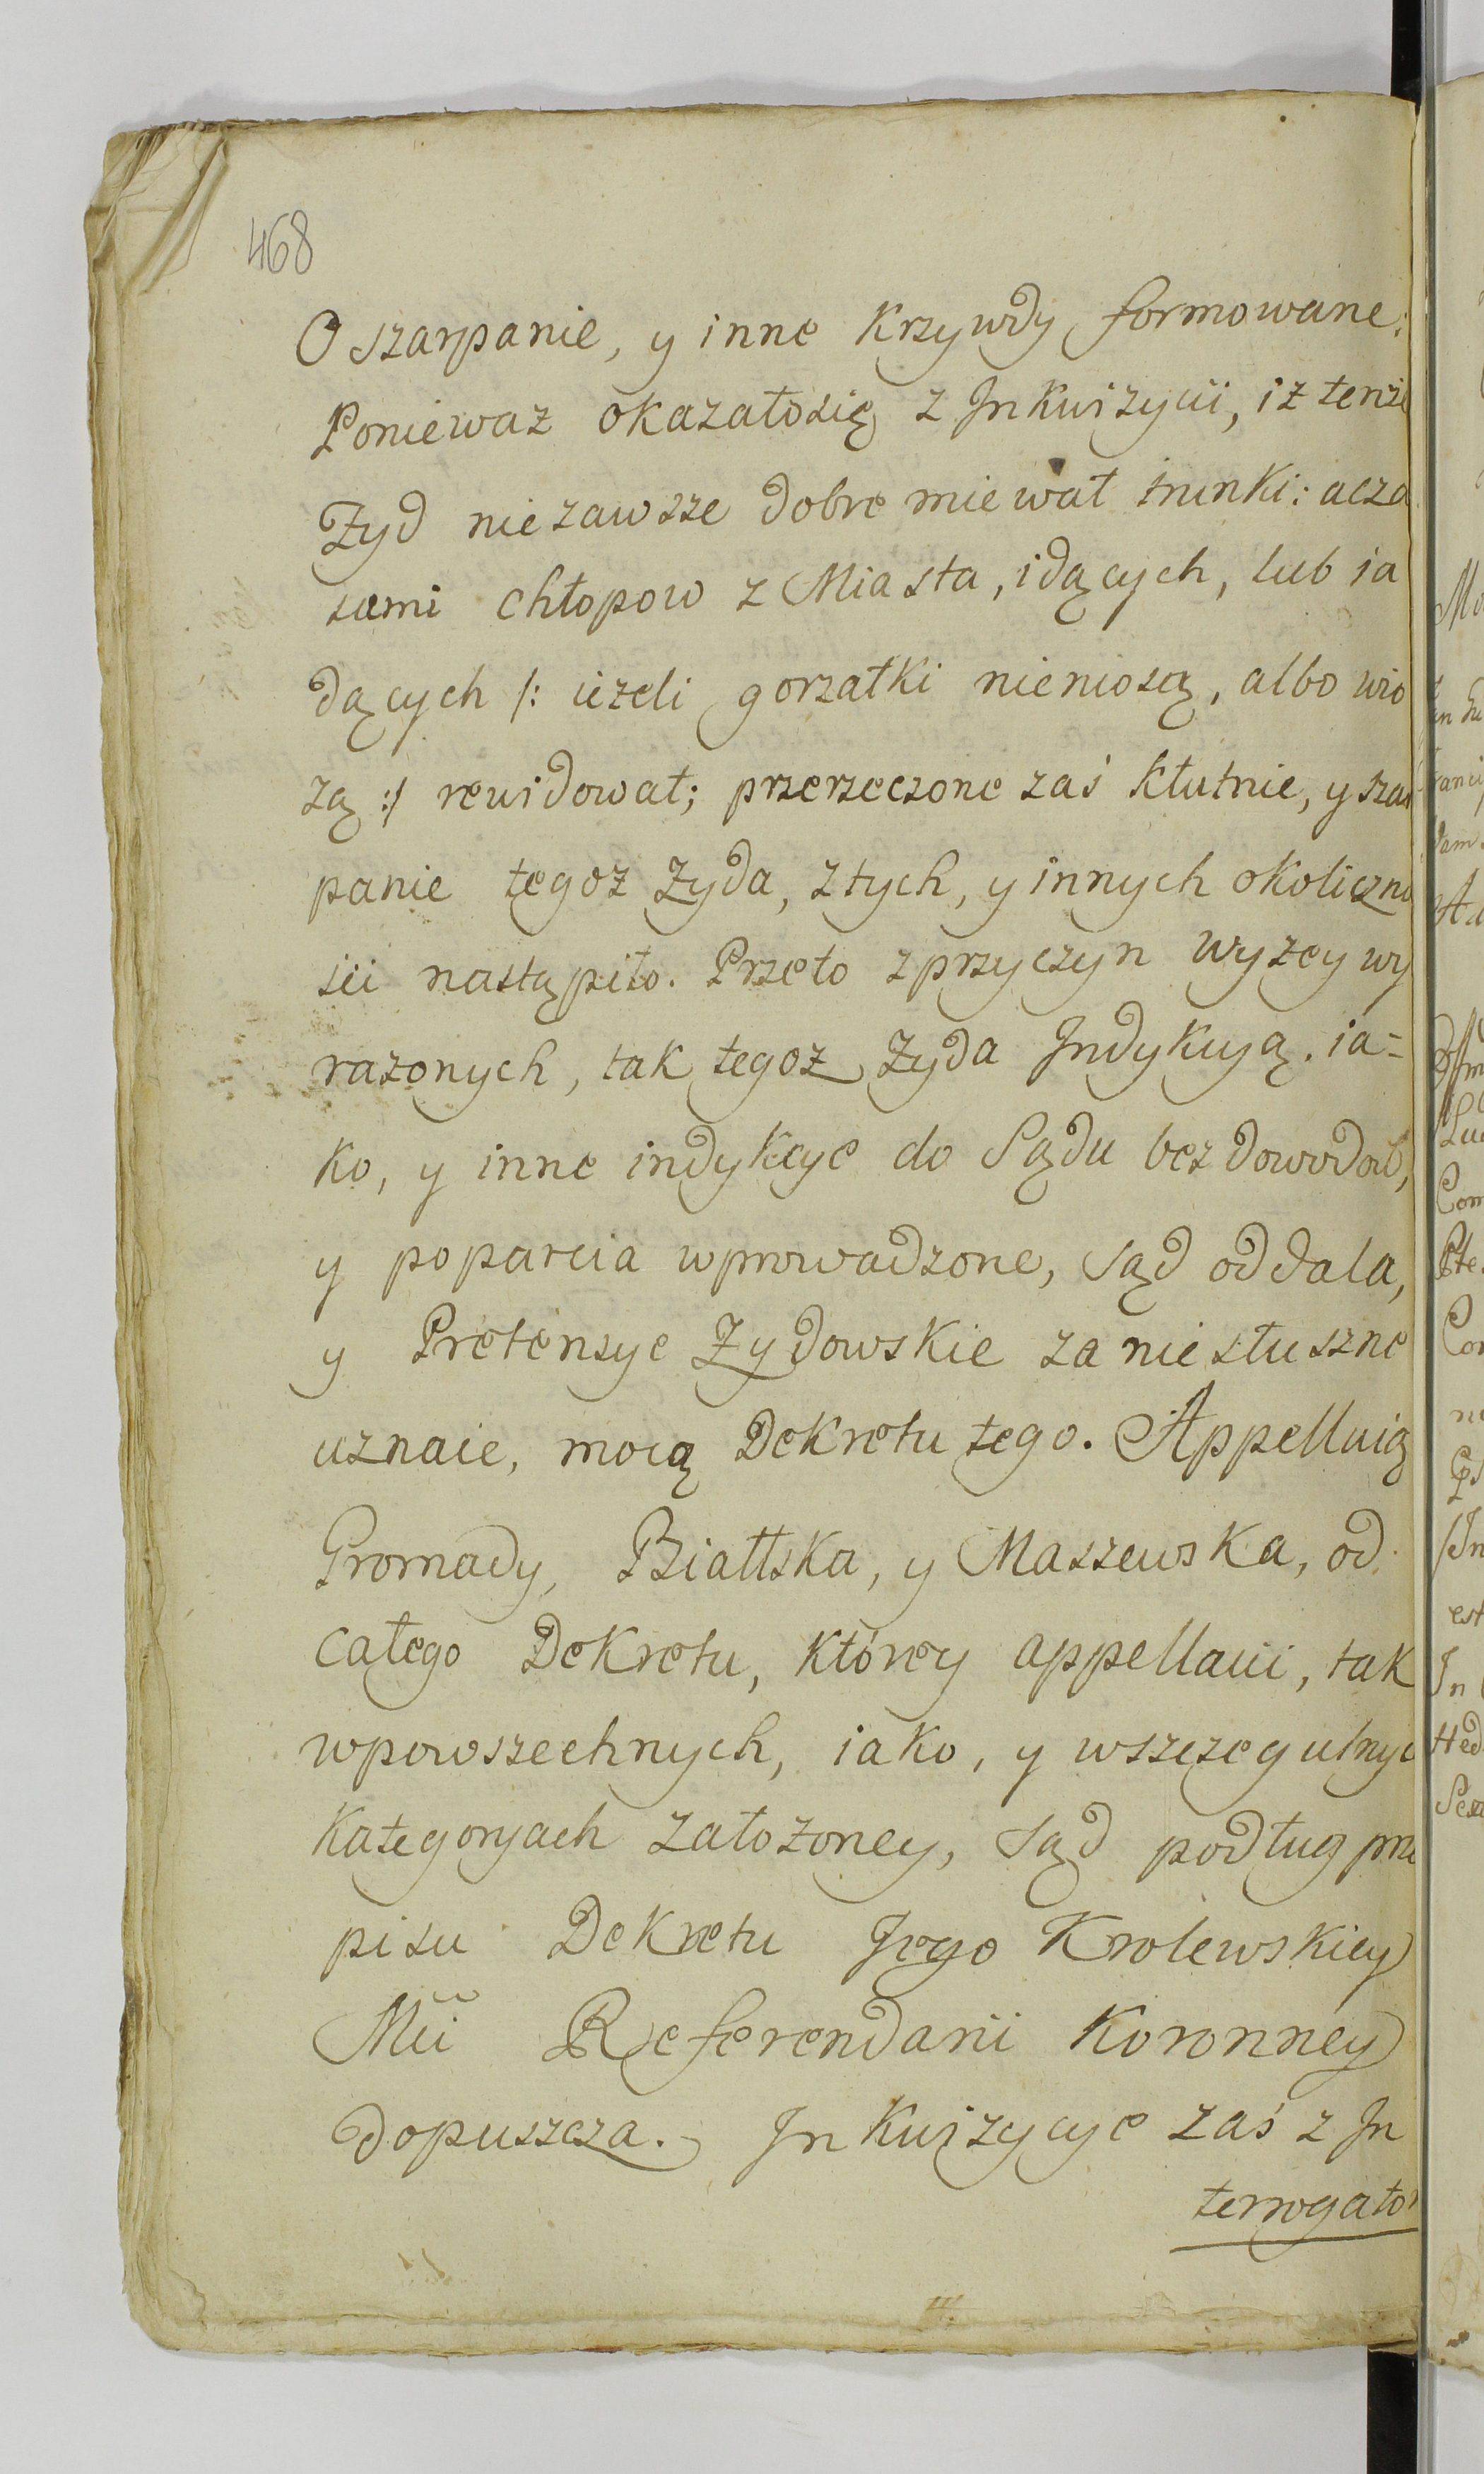 468
O szarpanie, y inne Krzywdy formowane:
Poniewaz okazałosię z Inkwizycii, iz tenże
Zyd niezawsze dobre miewał trunki: acza
sami chłopow z Miasta, idących, lub ia
dących /: ieżeli gorzałki nieniosą, albo wio
zą :/ rewidował; przerzeczone zaś kłutnie, y szar
panie tegoż Zyda, ztych, y innych okoliczno
ści nastąpiło. Przeto zprzyczyn wyżey wy
rażonych, tak tegoż Zyda Indykcyą. ia-
ko, y inne indykcye do Sądu bez dowodow,
y poparcia wprowadzone, Sąd oddala,
y Pretensye Zydowskie za niesłuszne
uznaie, mocą Dekretu tego. Appelluią
Gromady, Białtska, y Maszewska, od
całego Dekretu, którey appellacii, tak
wpowszechnych, iako, y wszczegulnych
Kategoryach założoney, Sąd podług prze
pisu Dekretu Jego Krolewskiey
Mci Referendarii Koronney
dopuszcza. Inkwizycye zaś z In
terrogator